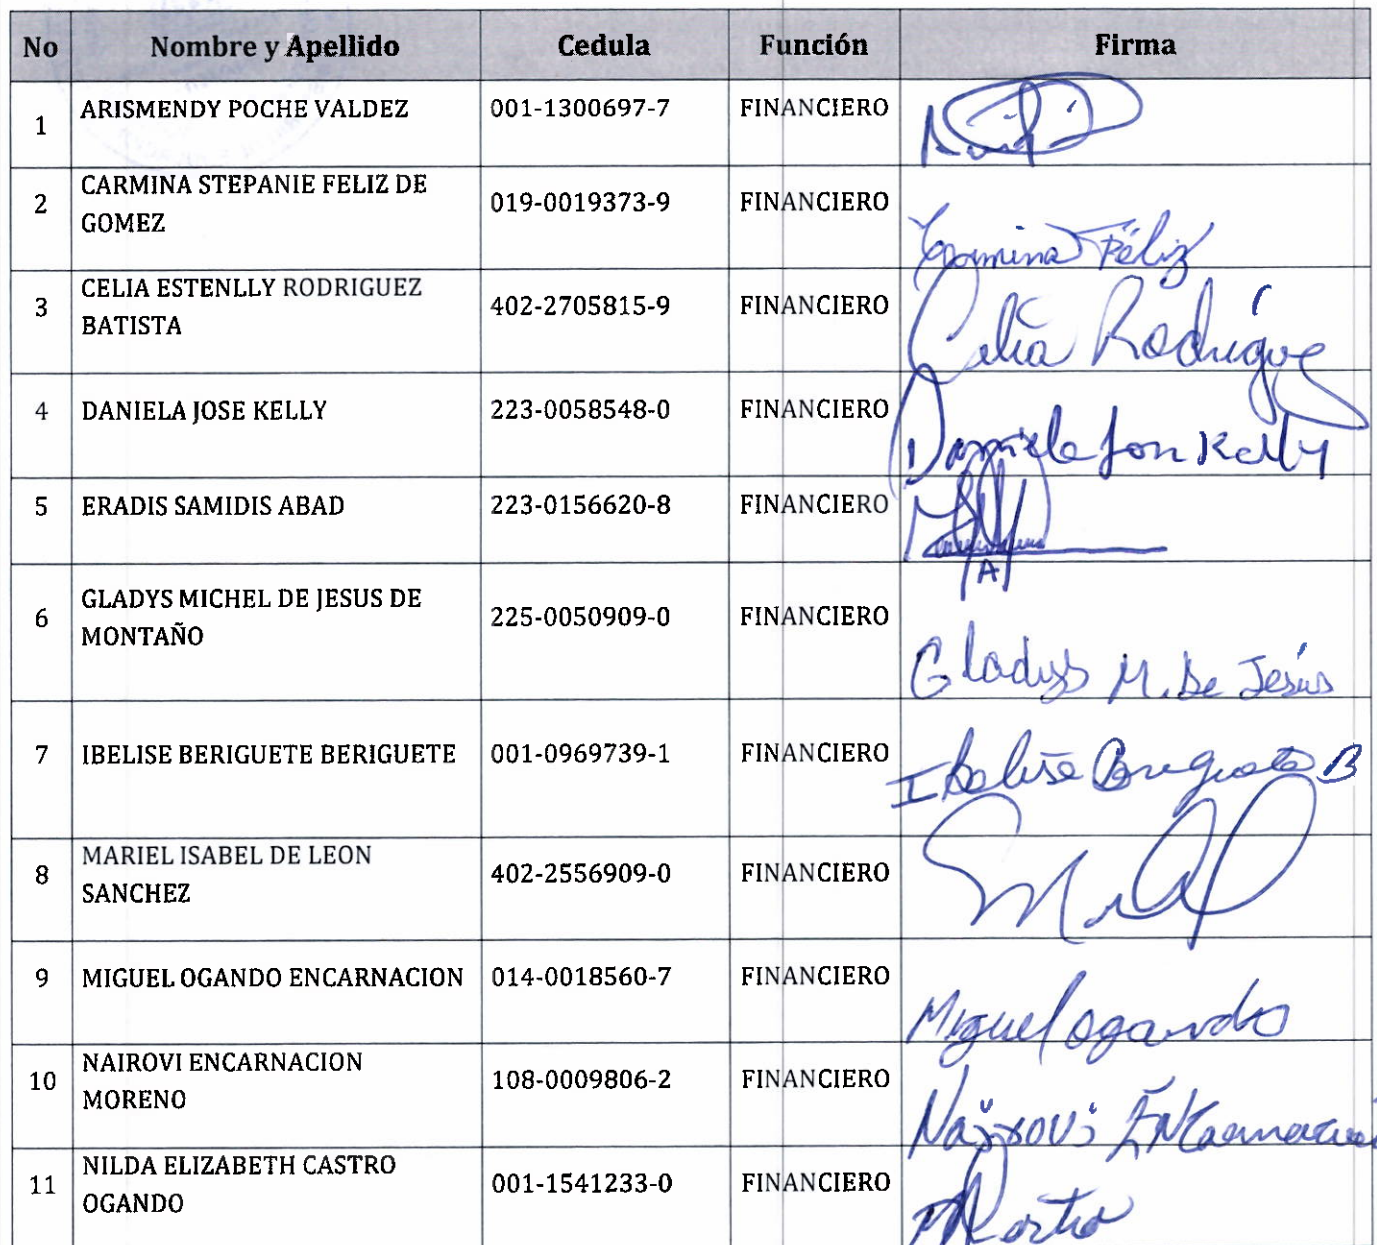 No Nombre y Apellido Cedula Función Firma
1 ARISMENDY POCHE VALDEZ 001-1300697-7 FINANCIERO
2 CARMINA STEPANIE FELIZ DE GOMEZ 019-0019373-9 FINANCIERO Carmina Féliz
3 CELIA ESTENLLY RODRIGUEZ BATISTA 402-2705815-9 FINANCIERO Celia Rodríguez
4 DANIELA JOSE KELLY 223-0058548-0 FINANCIERO Daniela Jose Kelly
5 ERADIS SAMIDIS ABAD 223-0156620-8 FINANCIERO
6 GLADYS MICHEL DE JESUS DE MONTAÑO 225-0050909-0 FINANCIERO Gladys M. De Jesús
7 IBELISE BERIGUETE BERIGUETE 001-0969739-1 FINANCIERO Ibelise Beriguete B
8 MARIEL ISABEL DE LEON SANCHEZ 402-2556909-0 FINANCIERO
9 MIGUEL OGANDO ENCARNACION 014-0018560-7 FINANCIERO Miguel Ogando
10 NAIROVI ENCARNACION MORENO 108-0009806-2 FINANCIERO Nairovi Encarnacion
11 NILDA ELIZABETH CASTRO OGANDO 001-1541233-0 FINANCIERO